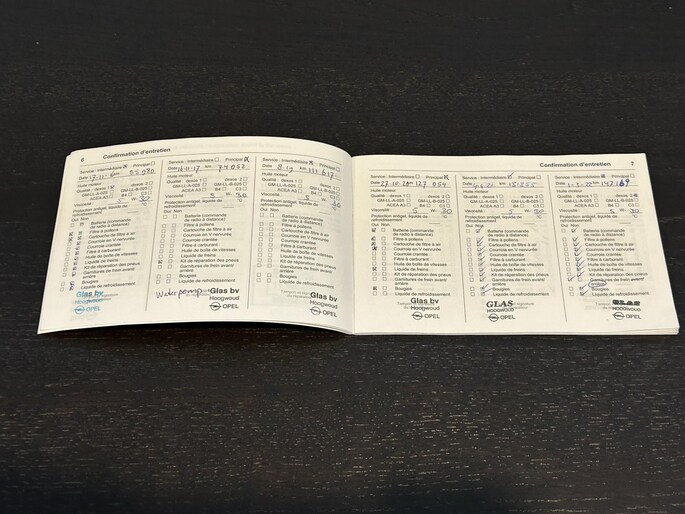 6 Confirmation d'entretien
Service : Intermédiaire Principal
Date km
Huile moteur
Qualité : dexos 1 dexos 2
GM-LL-A-025 GM-LL-B-025
ACEA A3 B4 C3
Viscosité : 5 W. 30
Protection antigel, liquide de refroidissement °C
Oui Non
Batterie (commande de radio à distance)
Filtre à pollens
Cartouche de filtre à air
Courroie en V nervurée
Courroie crantée
Filtre à carburant
Huile de boîte de vitesses
Liquide de freins
Kit de réparation des pneus
Garnitures de frein avant/arrière
Bougies
Liquide de refroidissement
Glas bv
Hoogwoud
OPEL
Service : Intermédiaire Principal
km 74082
Huile moteur
Qualité : dexos 1 dexos 2
GM-LL-A-025 GM-LL-B-025
ACEA A3 B4 C3
Viscosité : 5 W. 30
Protection antigel, liquide de refroidissement °C
Oui Non
Batterie (commande de radio à distance)
Filtre à pollens
Cartouche de filtre à air
Courroie en V nervurée
Courroie crantée
Filtre à carburant
Huile de boîte de vitesses
Liquide de freins
Kit de réparation des pneus
Garnitures de frein avant/arrière
Bougies
Liquide de refroidissement
Glas bv
Hoogwoud
OPEL
Service : Intermédiaire Principal
Date km 111617
Huile moteur
Qualité : dexos 1 dexos 2
GM-LL-A-025 GM-LL-B-025
ACEA A3 B4 C3
Viscosité : 5 W. 30
Protection antigel, liquide de refroidissement °C
Oui Non
Batterie (commande de radio à distance)
Filtre à pollens
Cartouche de filtre à air
Courroie en V nervurée
Courroie crantée
Filtre à carburant
Huile de boîte de vitesses
Liquide de freins
Kit de réparation des pneus
Garnitures de frein avant/arrière
Bougies
Liquide de refroidissement
Glas bv
Hoogwoud
OPEL
Confirmation d'entretien 7
Service : Intermédiaire Principal
Date km 127 054
Huile moteur
Qualité : dexos 1 dexos 2
GM-LL-A-025 GM-LL-B-025
ACEA A3 B4 C3
Viscosité : 5 W. 30
Protection antigel, liquide de refroidissement °C
Oui Non
Batterie (commande de radio à distance)
Filtre à pollens
Cartouche de filtre à air
Courroie en V nervurée
Courroie crantée
Filtre à carburant
Huile de boîte de vitesses
Liquide de freins
Kit de réparation des pneus
Garnitures de frein avant/arrière
Bougies
Liquide de refroidissement
Glas bv
Hoogwoud
OPEL
Service : Intermédiaire Principal
Date km
Huile moteur
Qualité : dexos 1 dexos 2
GM-LL-A-025 GM-LL-B-025
ACEA A3 B4 C3
Viscosité : 5 W. 30
Protection antigel, liquide de refroidissement °C
Oui Non
Batterie (commande de radio à distance)
Filtre à pollens
Cartouche de filtre à air
Courroie en V nervurée
Courroie crantée
Filtre à carburant
Huile de boîte de vitesses
Liquide de freins
Kit de réparation des pneus
Garnitures de frein avant/arrière
Bougies
Liquide de refroidissement
GLAS
HOOGWOUD
OPEL
Service : Intermédiaire Principal
Date km
Huile moteur
Qualité : dexos 1 dexos 2
GM-LL-A-025 GM-LL-B-025
ACEA A3 B4 C3
Viscosité : 5 W. 30
Protection antigel, liquide de refroidissement °C
Oui Non
Batterie (commande de radio à distance)
Filtre à pollens
Cartouche de filtre à air
Courroie en V nervurée
Courroie crantée
Filtre à carburant
Huile de boîte de vitesses
Liquide de freins
Kit de réparation des pneus
Garnitures de frein avant/arrière
Bougies
Liquide de refroidissement
GLAS
HOOGWOUD
OPEL